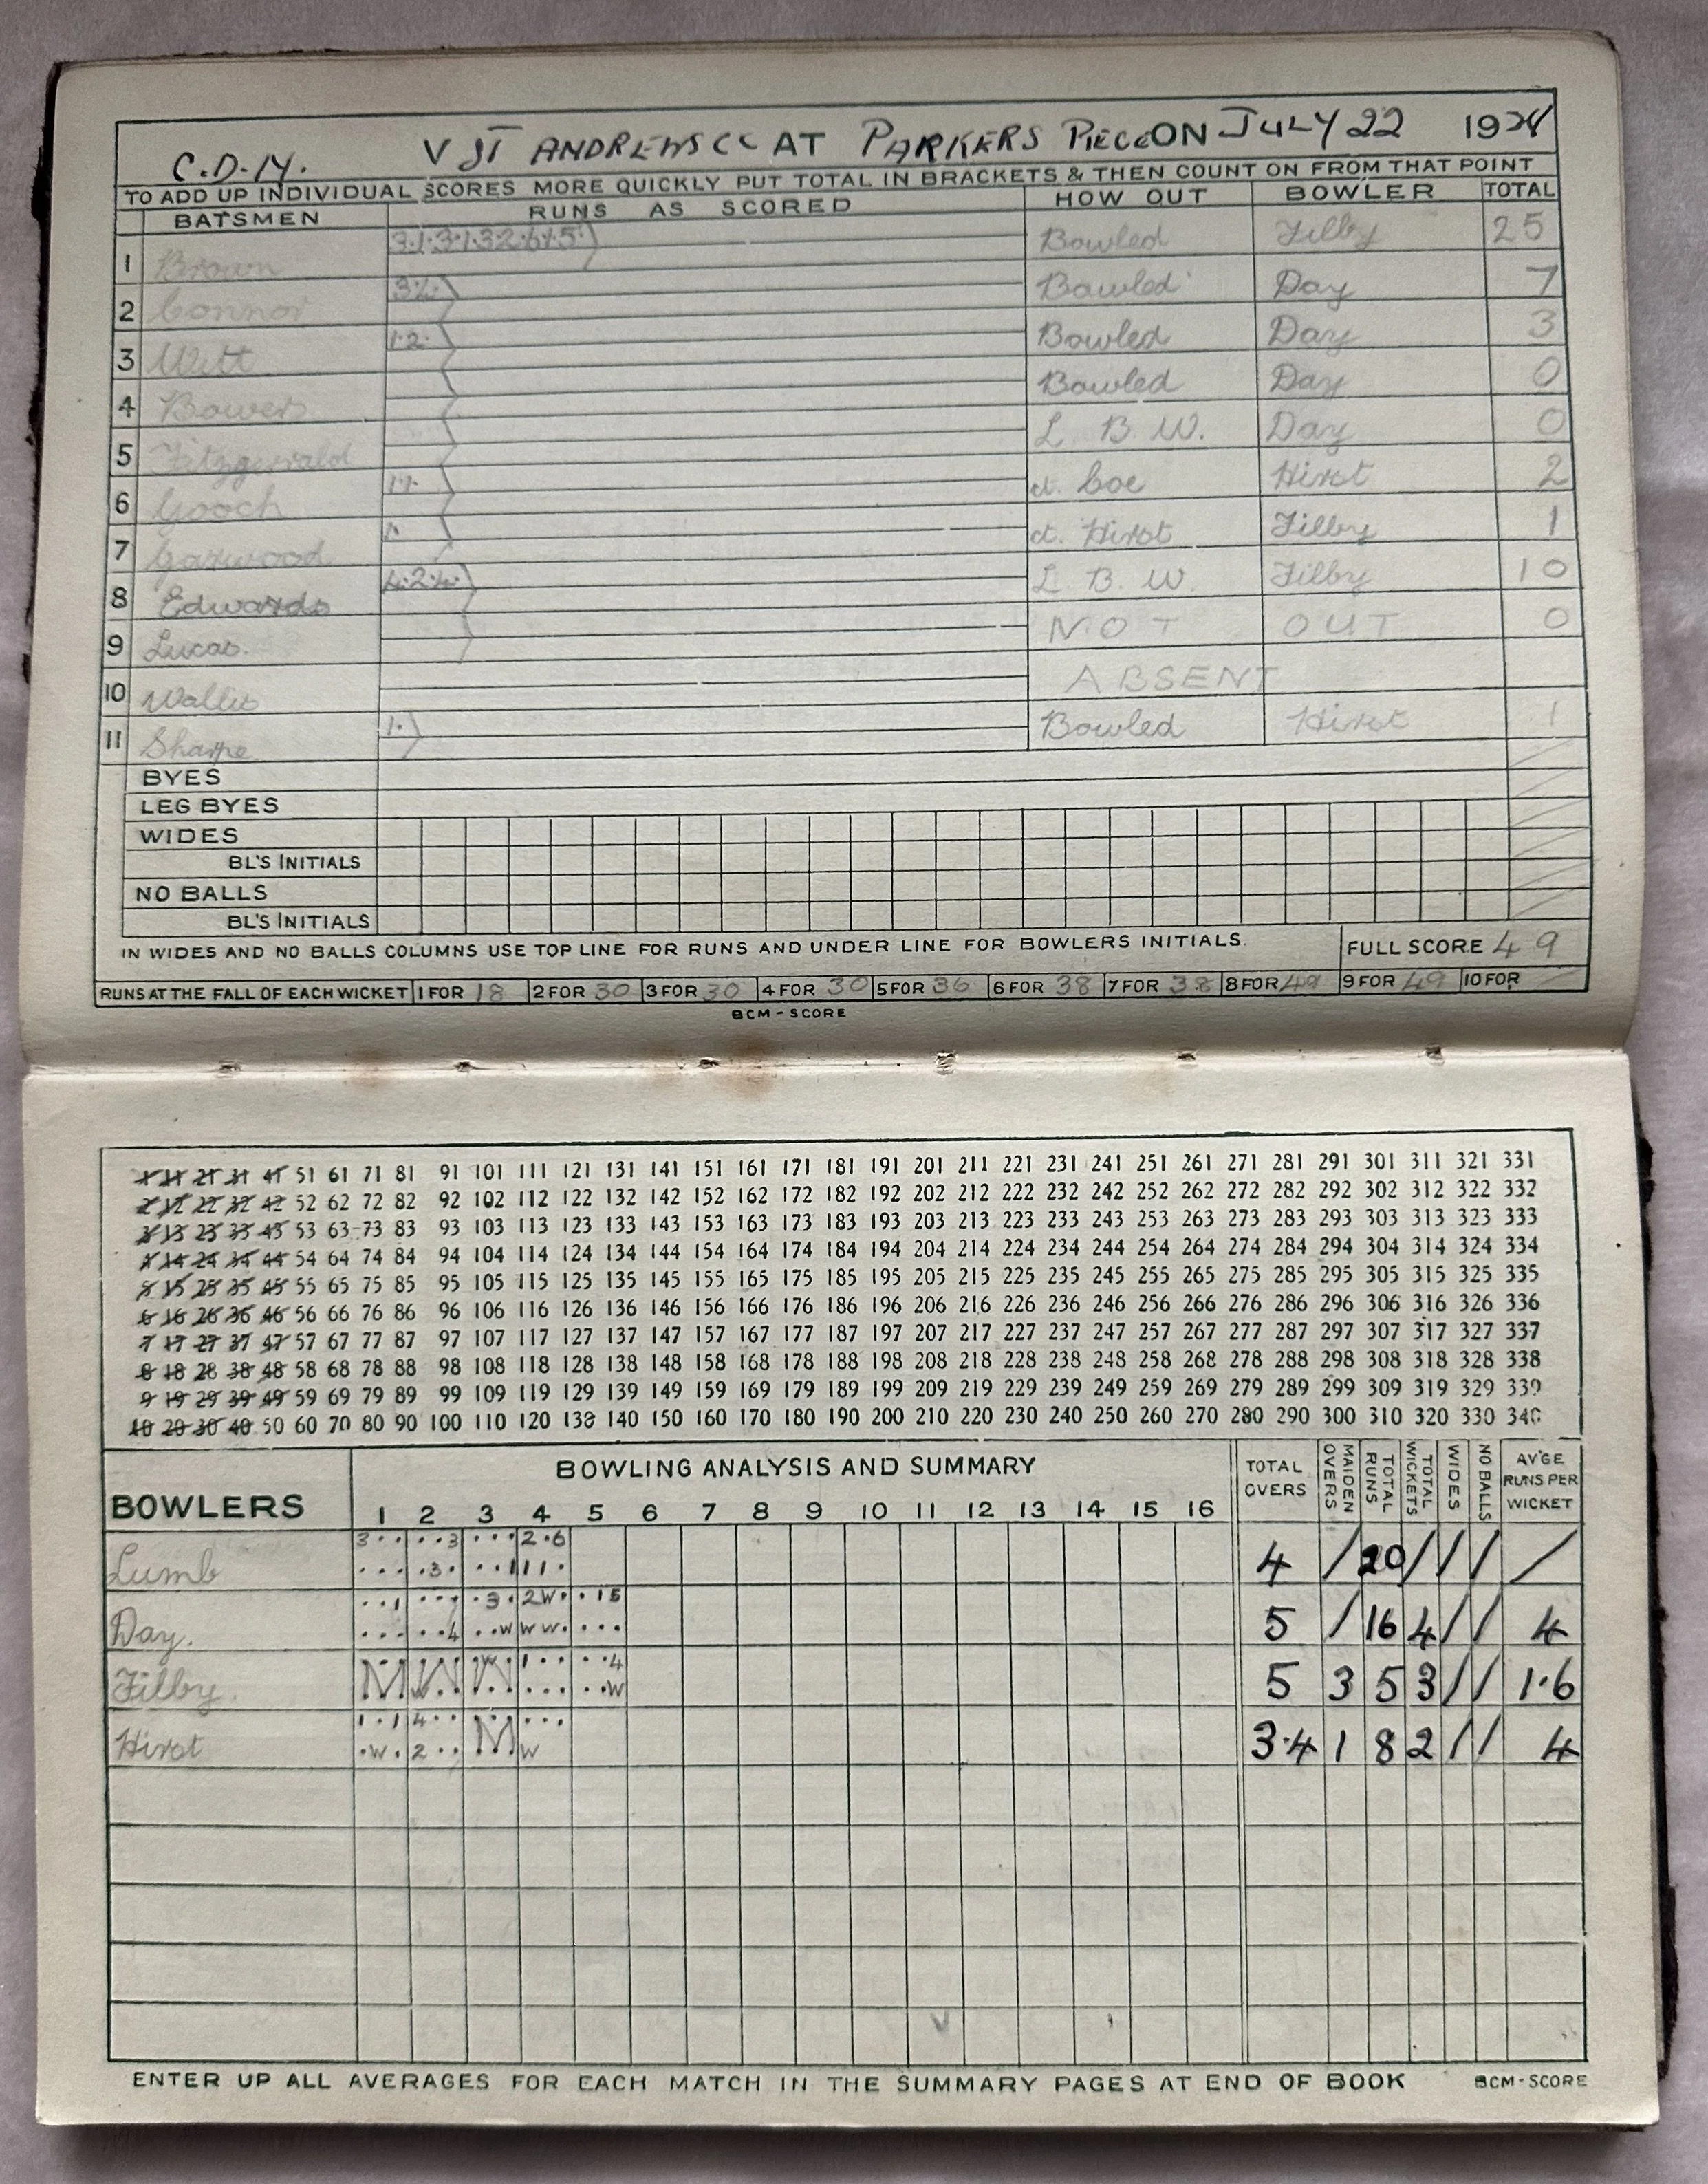 C.D.14. V ST ANDREWS CC AT PARKERS PIECE ON JULY 22 19
TO ADD UP INDIVIDUAL SCORES MORE QUICKLY PUT TOTAL IN BRACKETS & THEN COUNT ON FROM THAT POINT
BATSMEN RUNS AS SCORED HOW OUT BOWLER TOTAL
1 Brown 3·1·3·1·3·2·6·1·5· Bowled Filby 25
2 Connor 3·4· Bowled Day 7
3 Witt 1·2· Bowled Day 3
4 Bower Bowled Day 0
5 Fitzgerald L B.W. Day 0
6 Gooch 1·1· ct. Coe Hirst 2
7 Garwood 1· ct. Hirst Filby 1
8 Edwards 4·2·4· L. B. W. Filby 10
9 Lucas. NOT OUT 0
10 Wallis ABSENT
11 Sharpe 1· Bowled Hirst 1
BYES
LEG BYES
WIDES
BL'S INITIALS
NO BALLS
BL'S INITIALS
IN WIDES AND NO BALLS COLUMNS USE TOP LINE FOR RUNS AND UNDER LINE FOR BOWLERS INITIALS. FULL SCORE 49
RUNS AT THE FALL OF EACH WICKET 1 FOR 18 2 FOR 30 3 FOR 30 4 FOR 30 5 FOR 36 6 FOR 38 7 FOR 38 8 FOR 49 9 FOR 49 10 FOR
BCM-SCORE
1 11 21 31 41 51 61 71 81 91 101 111 121 131 141 151 161 171 181 191 201 211 221 231 241 251 261 271 281 291 301 311 321 331
2 12 22 32 42 52 62 72 82 92 102 112 122 132 142 152 162 172 182 192 202 212 222 232 242 252 262 272 282 292 302 312 322 332
3 13 23 33 43 53 63 73 83 93 103 113 123 133 143 153 163 173 183 193 203 213 223 233 243 253 263 273 283 293 303 313 323 333
4 14 24 34 44 54 64 74 84 94 104 114 124 134 144 154 164 174 184 194 204 214 224 234 244 254 264 274 284 294 304 314 324 334
5 15 25 35 45 55 65 75 85 95 105 115 125 135 145 155 165 175 185 195 205 215 225 235 245 255 265 275 285 295 305 315 325 335
6 16 26 36 46 56 66 76 86 96 106 116 126 136 146 156 166 176 186 196 206 216 226 236 246 256 266 276 286 296 306 316 326 336
7 17 27 37 47 57 67 77 87 97 107 117 127 137 147 157 167 177 187 197 207 217 227 237 247 257 267 277 287 297 307 317 327 337
8 18 28 38 48 58 68 78 88 98 108 118 128 138 148 158 168 178 188 198 208 218 228 238 248 258 268 278 288 298 308 318 328 338
9 19 29 39 49 59 69 79 89 99 109 119 129 139 149 159 169 179 189 199 209 219 229 239 249 259 269 279 289 299 309 319 329 339
10 20 30 40 50 60 70 80 90 100 110 120 130 140 150 160 170 180 190 200 210 220 230 240 250 260 270 280 290 300 310 320 330 340
BOWLERS BOWLING ANALYSIS AND SUMMARY TOTAL OVERS MAIDEN OVERS TOTAL RUNS TOTAL WICKETS WIDES NO BALLS AV'GE RUNS PER WICKET
1 2 3 4 5 6 7 8 9 10 11 12 13 14 15 16
3·· ··3 ··· 2·6
Lumb ··· ·3· ··1 11· 4 / 20 / / / /
··1 ··· ·3· 2W· ·15
Day. ··· ··4 ··W WW· ··· 5 / 16 4 / / 4
Filby. M W W 1·· ··· ··4 ··W 5 3 5 3 / / 1·6
1·1 4·· M ···
Hirst ·W· 2·· W 3·4 1 8 2 / / 4
ENTER UP ALL AVERAGES FOR EACH MATCH IN THE SUMMARY PAGES AT END OF BOOK BCM-SCORE